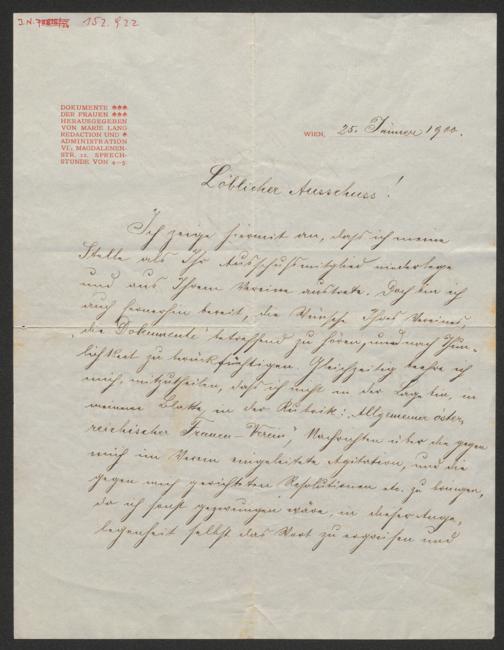 J. N. 152.922
DOKUMENTE ***
DER FRAUEN ***
HERAUSGEGEBEN
VON MARIE LANG
REDACTION UND *
ADMINISTRATION
VI., MAGDALENEN-
STR. 12. SPRECH-
STUNDE VON 4–5
WIEN, 25. Jänner 1900.
Löblicher Ausschuss!
Ich zeige hiermit an, daß ich meine
Stelle als Ihr Ausschußmitglied niederlege
und aus Ihrem Vereine austrete. Doch bin ich
auch fernerhin bereit, die Wünsche Ihres Vereines,
die „Dokumente" betreffend zu hören, und nach Thun-
lichkeit zu berücksichtigen. Gleichzeitig beehre ich
mich, mitzutheilen, daß ich nicht in der Lage bin, in
meinem Blatte, in der Rubrik: „Allgemeiner öster-
reichischer Frauen-Verein", Nachrichten über die gegen
mich im Verein eingeleitete Agitation, und die
gegen mich gerichteten Resolutionen etc. zu bringen,
da ich sonst gezwungen wäre, in dieser Ange-
legenheit selbst das Wort zu ergreifen und